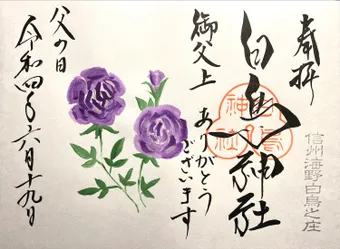 奉拝
信州海野白鳥之庄
白鳥神社
御父上
ありがとう
ございます
父の日
令和四年六月十九日